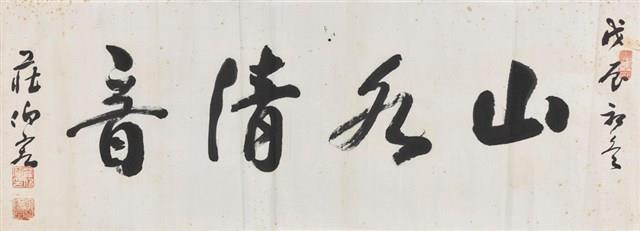 戊辰初冬
山水清音
莊伯容